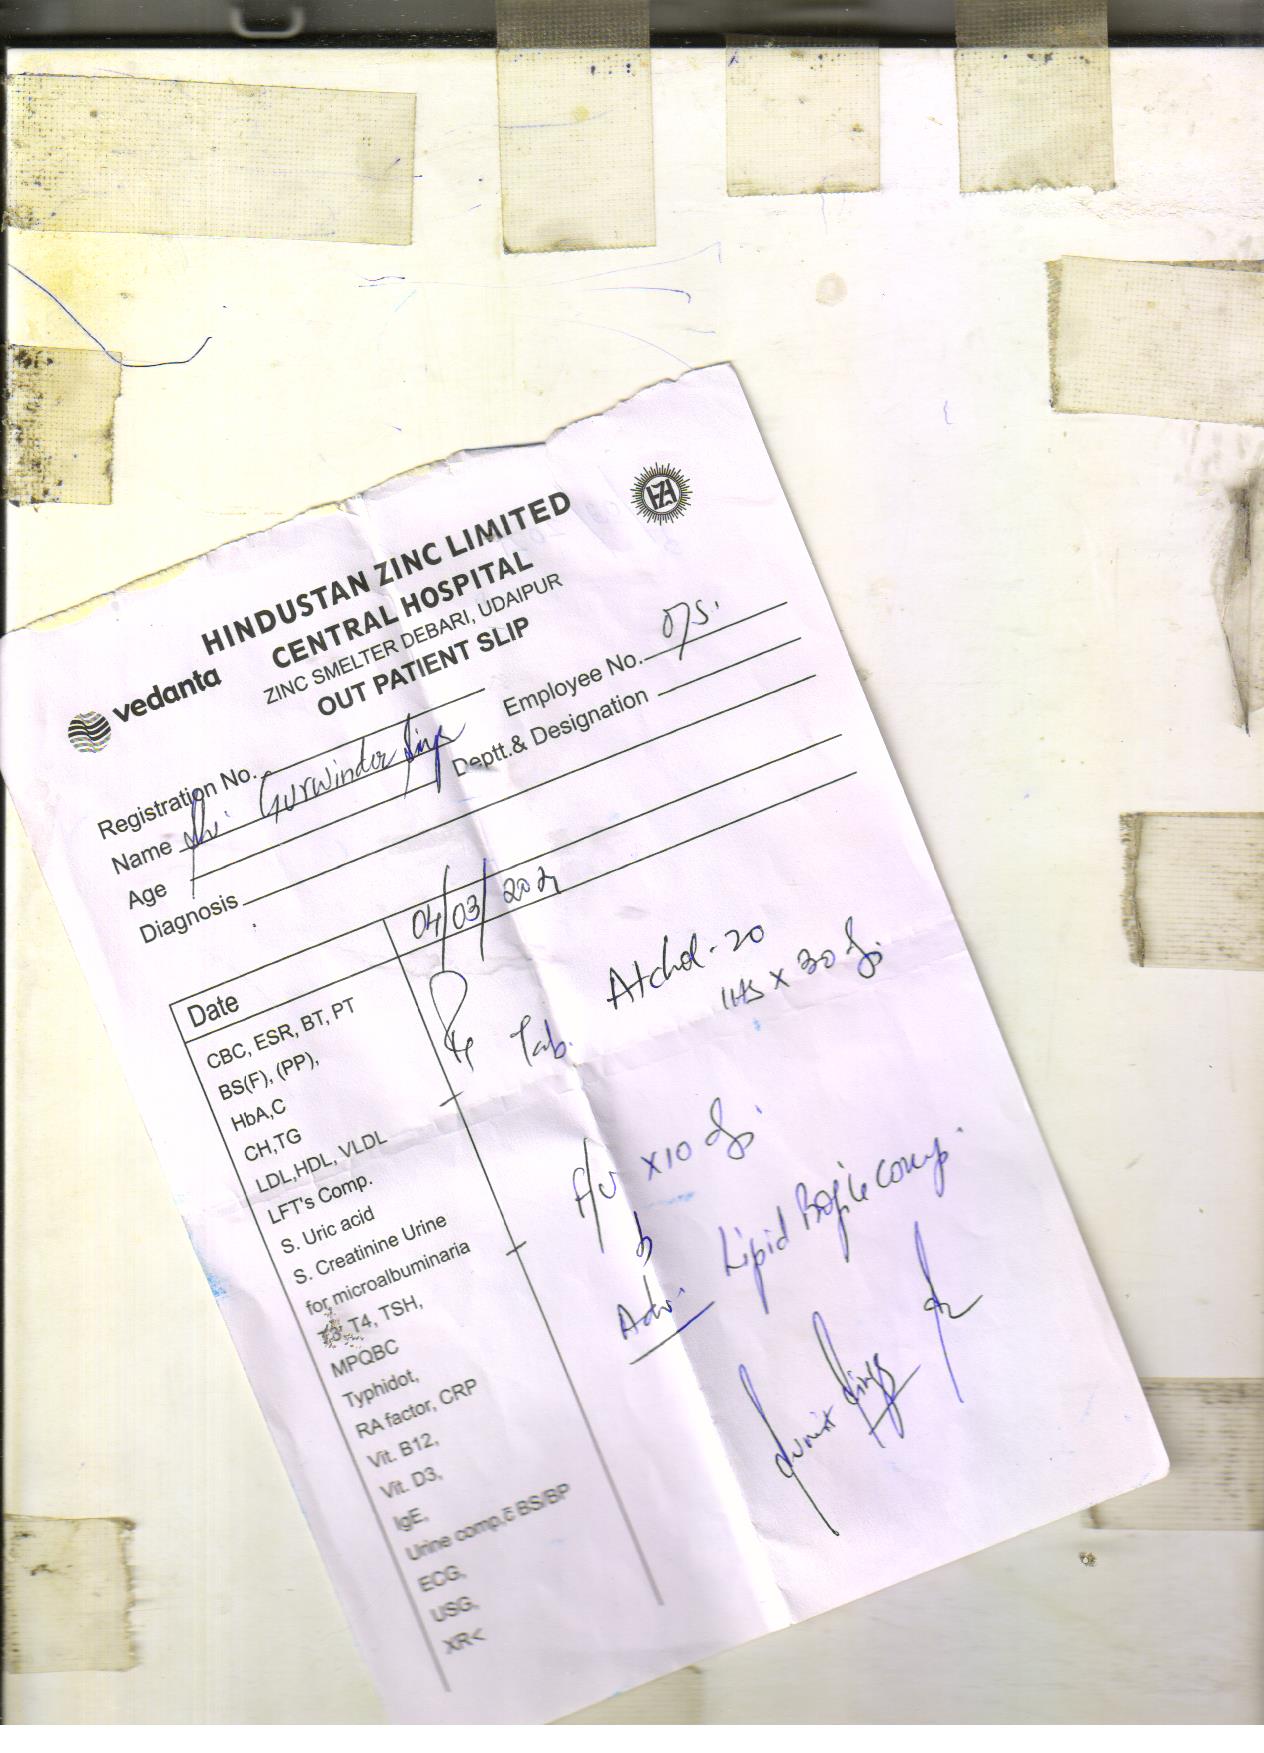 HINDUSTAN ZINC LIMITED
CENTRAL HOSPITAL
vedanta
ZINC SMELTER DEBARI, UDAIPUR
OUT PATIENT SLIP
Registration No. Employee No. O/S.
Name Gurwinder Singh Deptt.& Designation
Age
Diagnosis
Date 04/03/
CBC, ESR, BT, PT
BS(F), (PP),
HbA,C
CH,TG
LDL,HDL, VLDL
LFT's Comp.
S. Uric acid
S. Creatinine Urine
for microalbuminaria
T3, T4, TSH,
MPQBC
Typhidot,
RA factor, CRP
Vit. B12,
Vit. D3,
IgE,
Urine comp,c̄ BS/BP
ECG,
USG,
XR<
Tab. Atchol-20
1HS X 30
F/U X10
Adv. Lipid Profile comp.